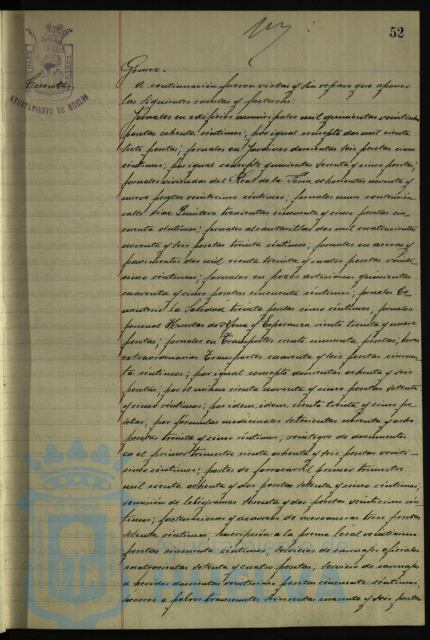 52
Gómez.
Cuentas
AYUNTAMIENTO DE HUELVA
A continuación fueron vistas y sin reparo que oponer
las siguientes cuentas y facturas:
Jornales en edificios municipales mil quinientas veintiuna
pesetas ochenta céntimos; por igual concepto dos mil ciento
siete pesetas; jornales en Jardines doscientas seis pesetas cinco
céntimos; por igual concepto quinientas setenta y cinco pesetas;
jornales viviendas del Real de la Feria ochocientas noventa y
nueve pesetas veinticinco céntimos; jornales muro contención
calle trescientas cincuenta y cinco pesetas cin-
cuenta céntimos; jornales alcantarillas dos mil cuatrocientas
noventa y seis pesetas treinta céntimos; jornales en aceras y
pavimentos dos mil ciento treinta y cuatro pesetas veinti-
cinco céntimos; jornales en pozos artesianos quinientas
cuarenta y cinco pesetas cincuenta céntimos; jornales Ce-
menterio la Soledad treinta pesetas cinco céntimos; jornales
personal Huertas de Mena y Esperanza ciento treinta y nueve
pesetas; jornales en Transportes ciento cincuenta pesetas; horas
extraordinarias Transportes cuarenta y seis pesetas cincuen-
ta céntimos; por igual concepto doscientas ochenta y seis
pesetas; por el mismo ciento noventa y cinco pesetas setenta
y cinco céntimos; por idem, idem, ciento treinta y cinco pe-
setas; por fórmulas medicinales setecientas noventa y ocho
pesetas treinta y cinco céntimos; reintegro de documentos
en el primer trimestre ciento ochenta y seis pesetas veinti-
cinco céntimos; portes de ferrocarril primer trimestre
mil ciento ochenta y dos pesetas setenta y cinco céntimos;
remisión de telegramas setenta y dos pesetas veinticinco cén-
timos; facturaciones y acarreos de mercancías trece pesetas
setenta céntimos; suscripción a la prensa local veinticinco
pesetas cincuenta céntimos; servicios de carruajes oficiales
cuatrocientas setenta y cuatro pesetas; servicio de carruajes
a doscientas veinticinco pesetas cincuenta céntimos;
socorros a pobres transeuntes cincuenta y seis pesetas